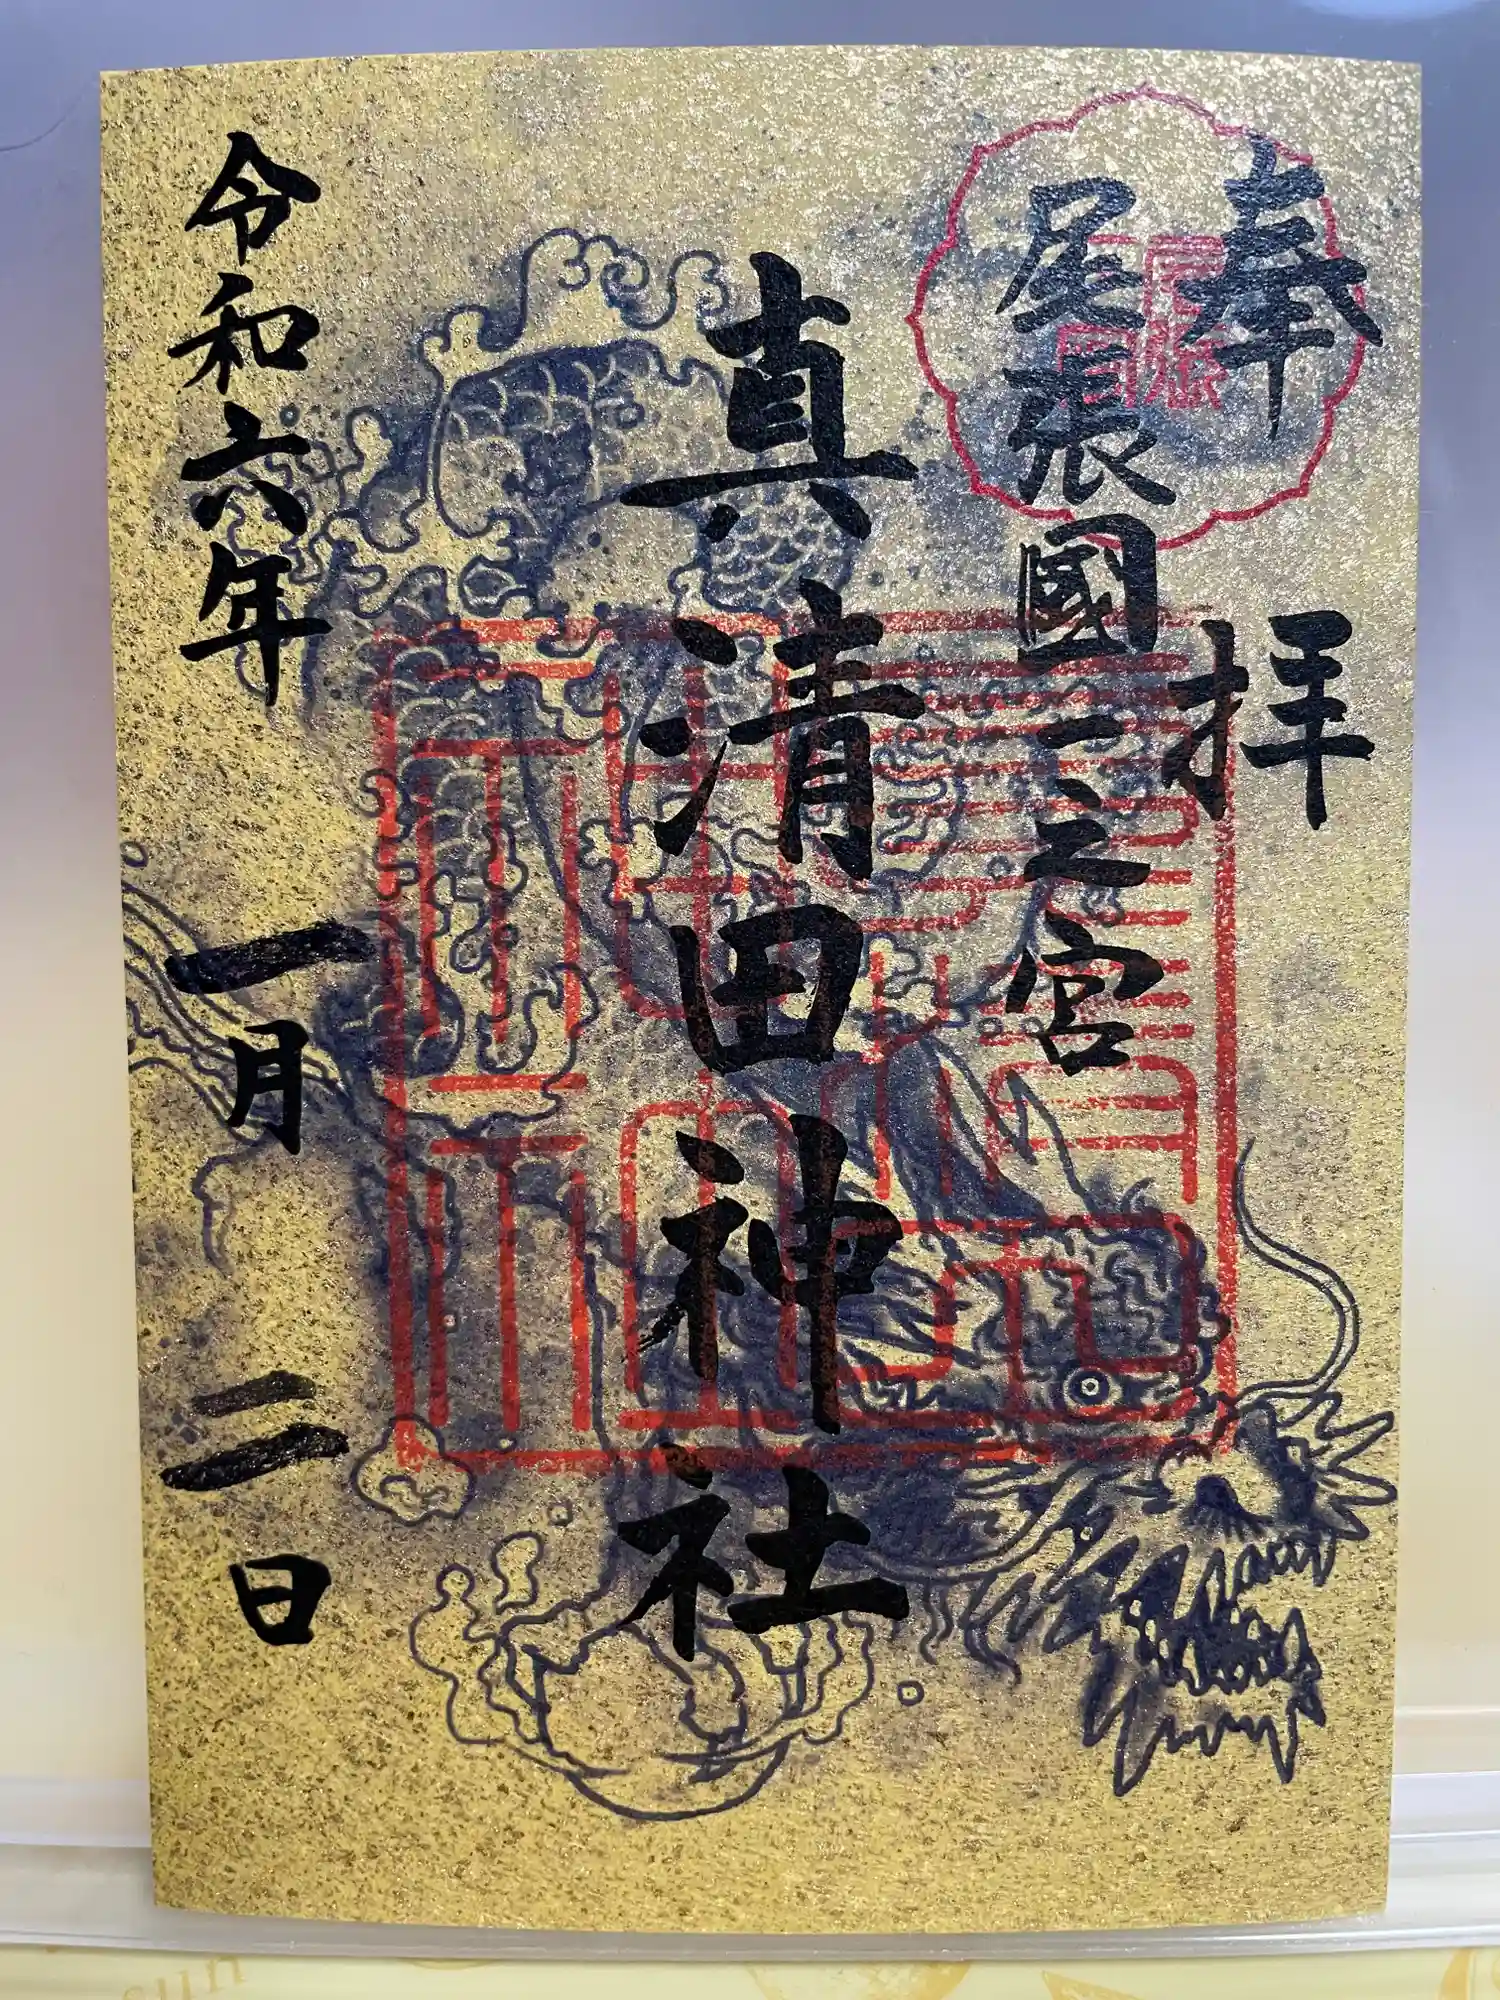 奉拝
尾張國一之宮
真清田神社
令和六年
一月二日
sun